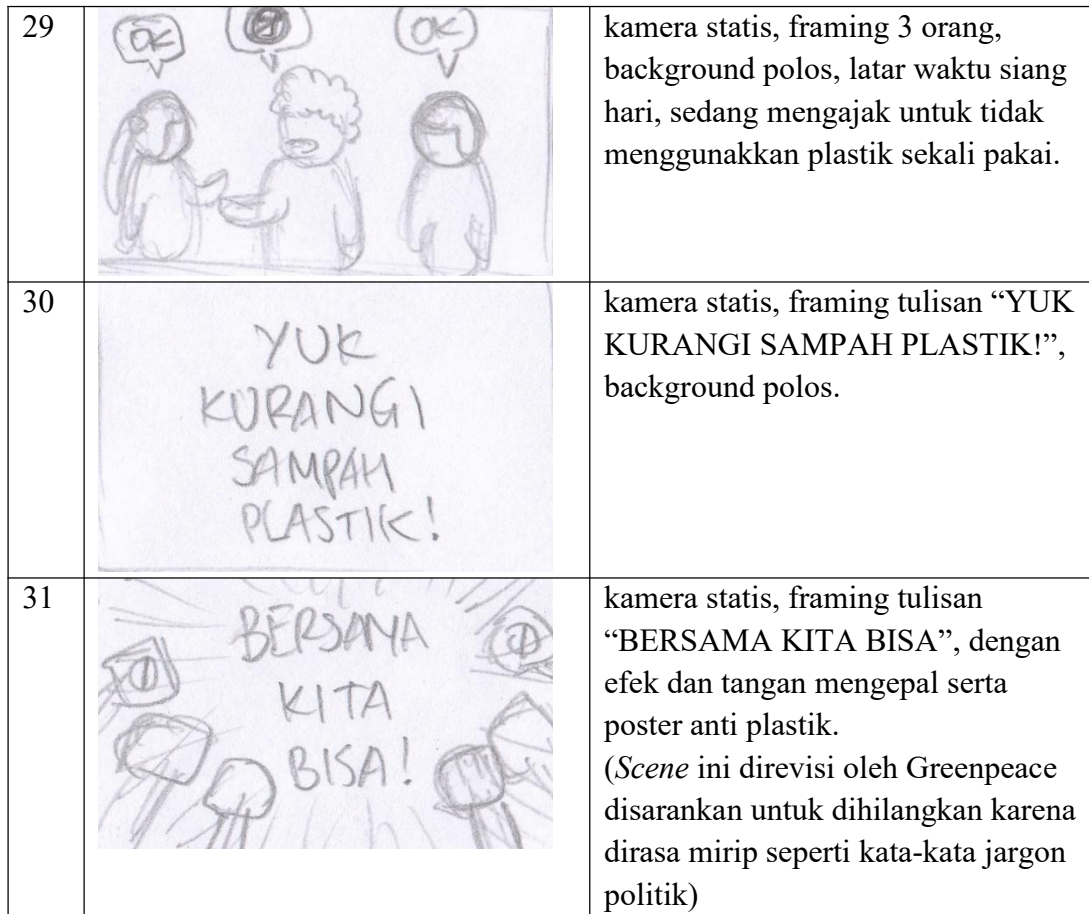 29
OK
OK
kamera statis, framing 3 orang,
background polos, latar waktu siang
hari, sedang mengajak untuk tidak
menggunakkan plastik sekali pakai.
30
YUK
KURANGI
SAMPAH
PLASTIK!
kamera statis, framing tulisan “YUK
KURANGI SAMPAH PLASTIK!”,
background polos.
31
BERSAMA
KITA
BISA!
kamera statis, framing tulisan
“BERSAMA KITA BISA”, dengan
efek dan tangan mengepal serta
poster anti plastik.
(Scene ini direvisi oleh Greenpeace
disarankan untuk dihilangkan karena
dirasa mirip seperti kata-kata jargon
politik)